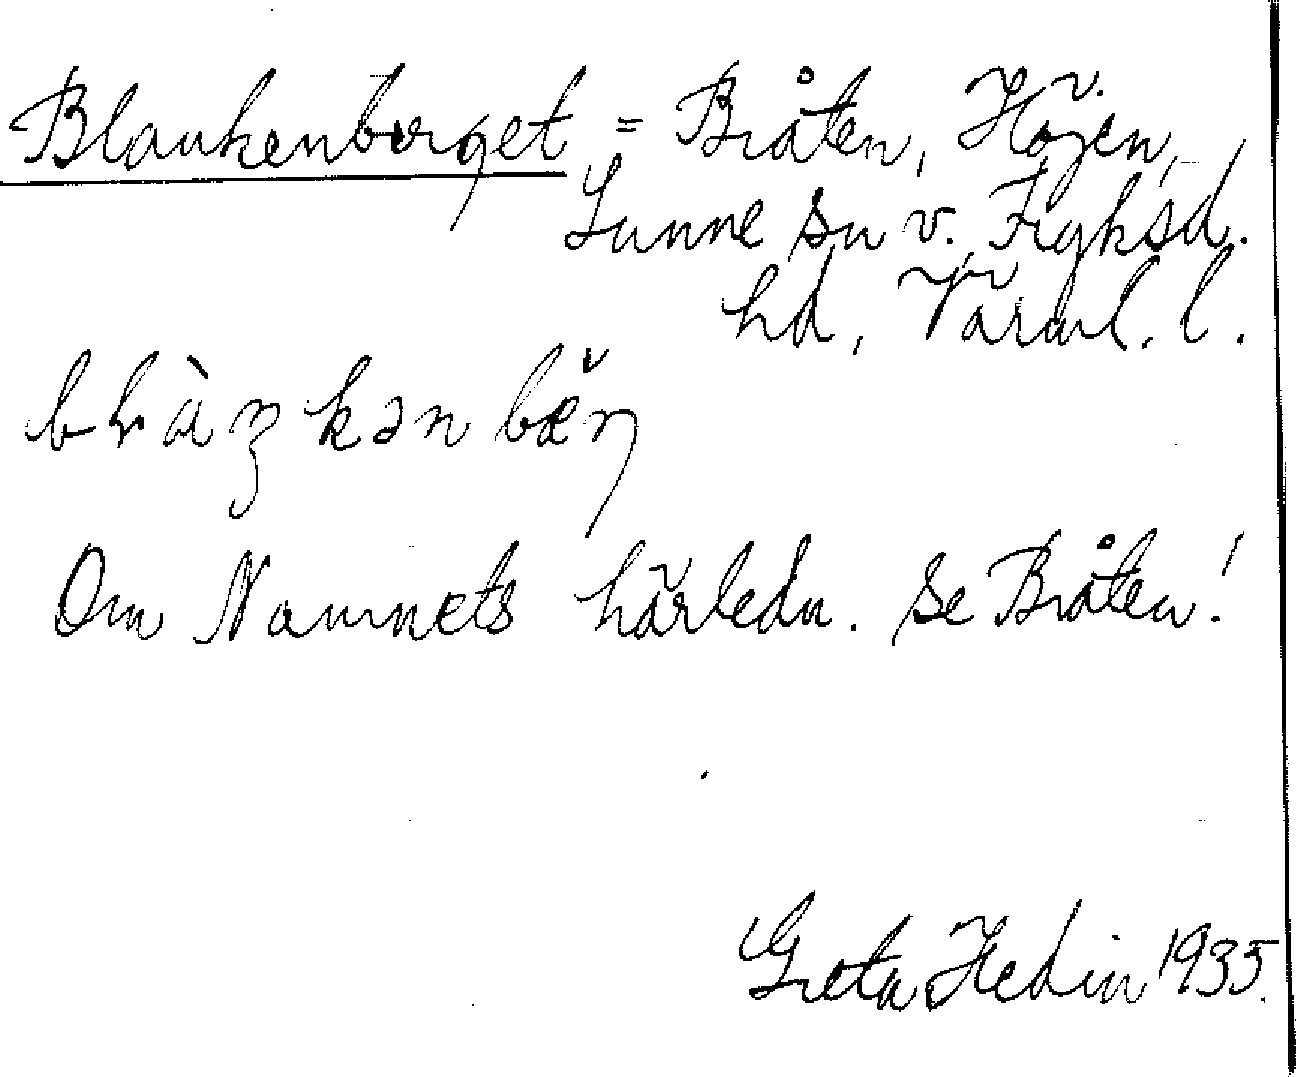 Blankenberget = Bråten, Höjen,
Sunne sn v. Fryksd.
hd, Värml. l.
Om Namnets härledn. se Bråten!
Greta Hedin 1935.